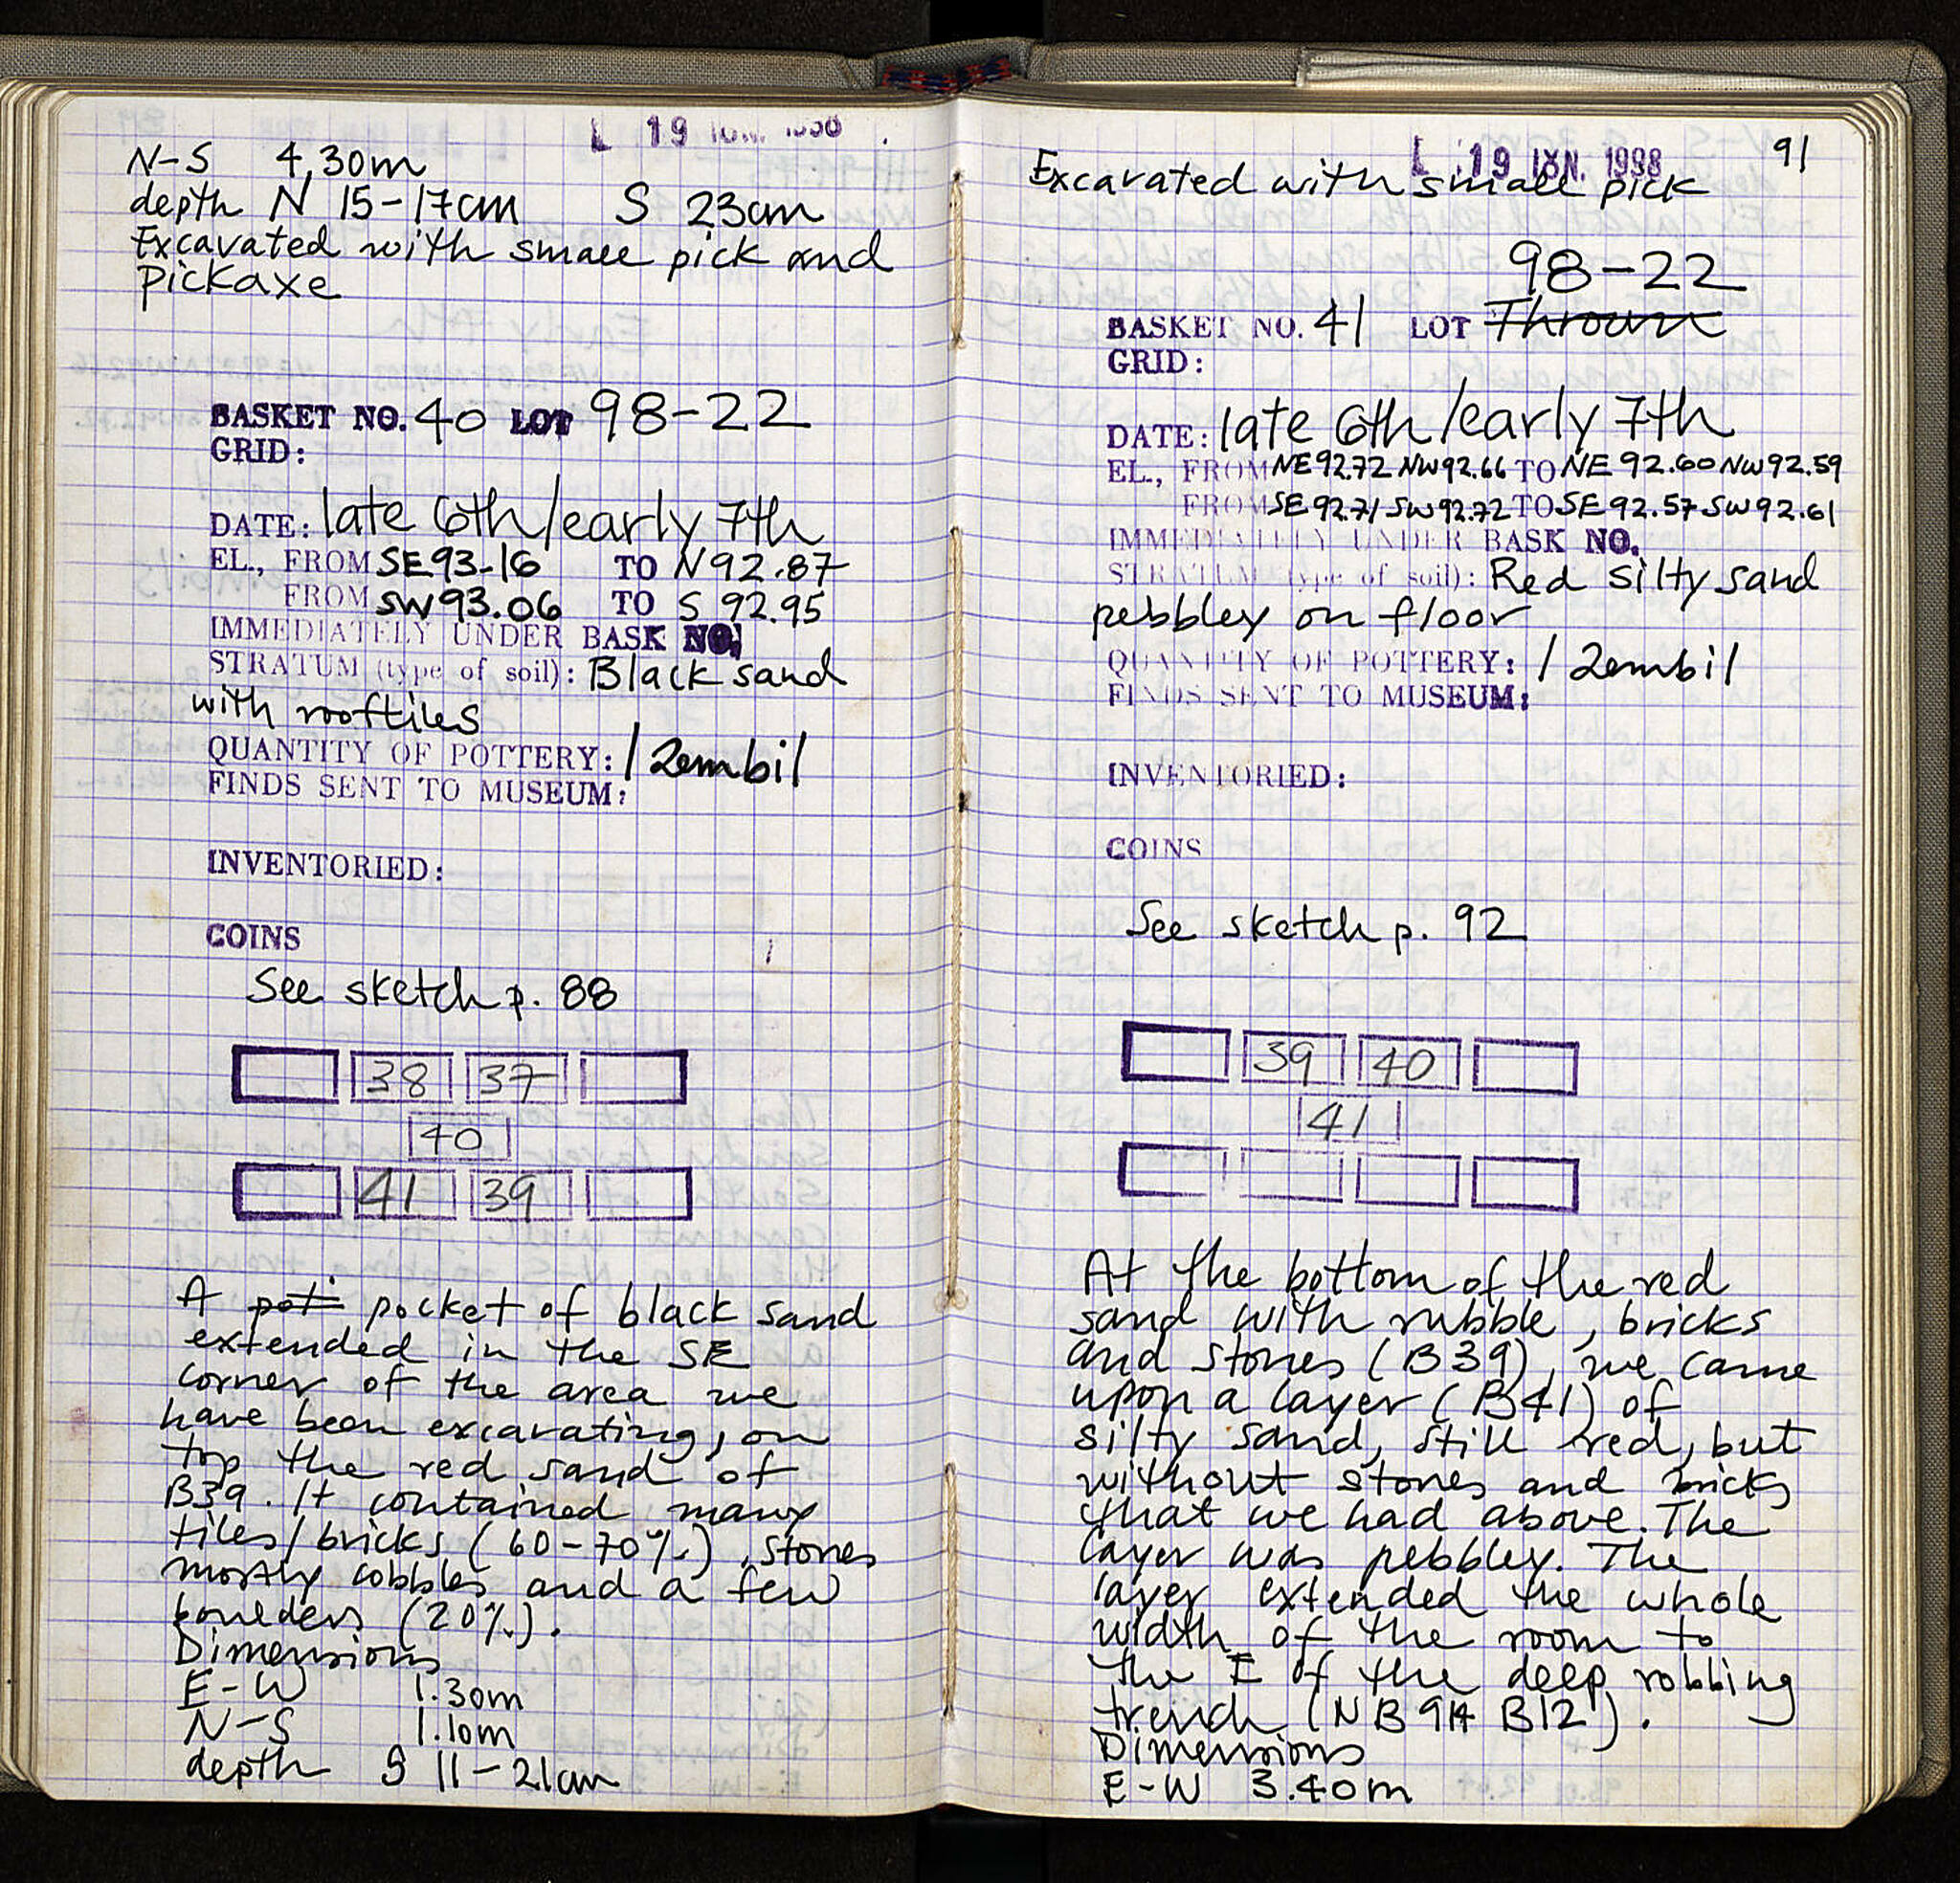 L 19 IUN. 1998
N-S 4,30m
depth N 15-17cm S 23cm
Excavated with small pick and
pickaxe
BASKET NO. 40 LOT 98-22
GRID:
DATE: late 6th/early 7th
EL., FROM SE93-16 TO N92.87
FROM SW93.06 TO S 92.95
IMMEDIATELY UNDER BASK NO.
STRATUM (type of soil): Black sand
with rooftiles
QUANTITY OF POTTERY: 1 zembil
FINDS SENT TO MUSEUM:
INVENTORIED:
COINS
See sketch p. 88
38 37
40
41 39
A pot pocket of black sand
extended in the SE
corner of the area we
have been excavating, on
top the red sand of
B39. It contained many
tiles/bricks (60-70%), stones
mostly cobbles and a few
boulders (20%).
Dimensions
E-W 1.30m
N-S 1.10m
depth S 11-21cm
L 19 IUN. 1998 91
Excavated with small pick
98-22
BASKET NO. 41 LOT Thrown
GRID:
DATE: late 6th/early 7th
EL., FROM NE92.72 NW92.66 TO NE 92.60 NW92.59
FROM SE92.71 SW92.72 TO SE 92.57 SW92.61
IMMEDIATELY UNDER BASK NO.
STRATUM (type of soil): Red silty sand
pebbley on floor
QUANTITY OF POTTERY: 1 zembil
FINDS SENT TO MUSEUM:
INVENTORIED:
COINS
See sketch p. 92
39 40
41
At the bottom of the red
sand with rubble, bricks
and stones (B39), we came
upon a layer (B41) of
silty sand, still red, but
without stones and bricks
that we had above. The
layer was pebbley. The
layer extended the whole
width of the room to
the E of the deep robbing
trench (NB 914 B12).
Dimensions
E-W 3.40m